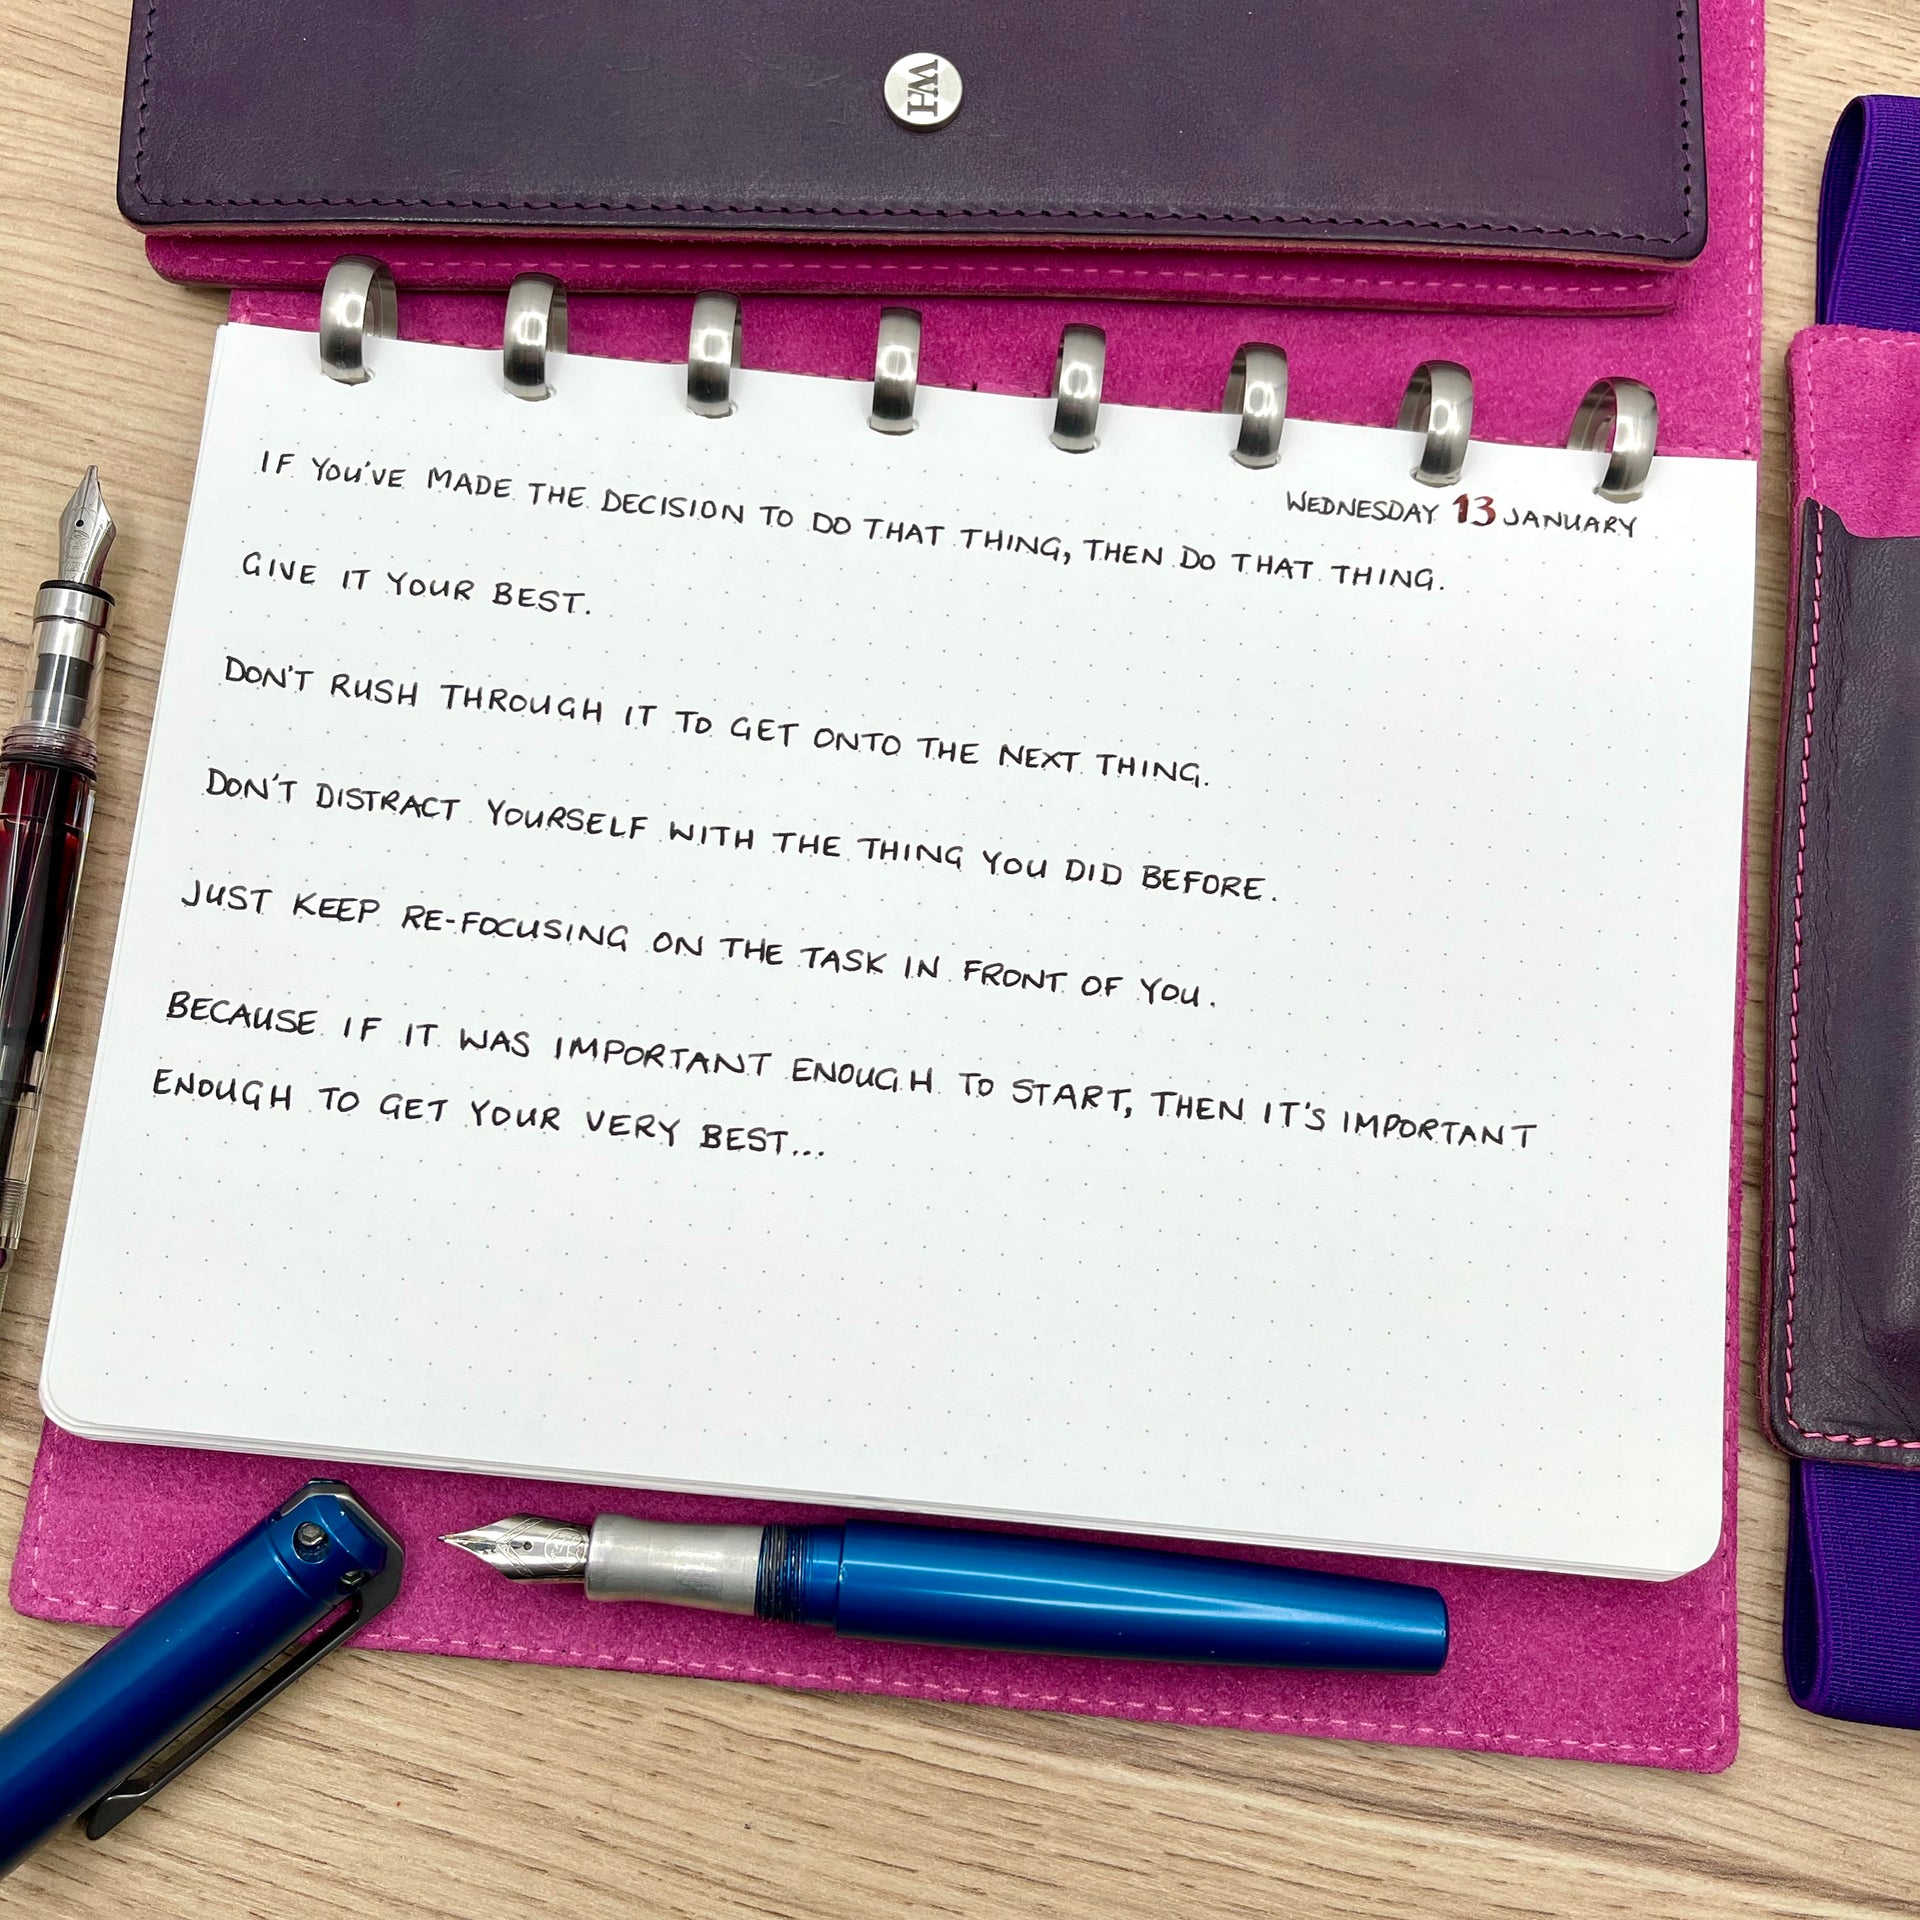 WH
WEDNESDAY 13 JANUARY
IF YOU'VE MADE THE DECISION TO DO THAT THING, THEN DO THAT THING.
GIVE IT YOUR BEST.
DON'T RUSH THROUGH IT TO GET ONTO THE NEXT THING.
DON'T DISTRACT YOURSELF WITH THE THING YOU DID BEFORE.
JUST KEEP RE-FOCUSING ON THE TASK IN FRONT OF YOU.
BECAUSE IF IT WAS IMPORTANT ENOUGH TO START, THEN IT'S IMPORTANT
ENOUGH TO GET YOUR VERY BEST...